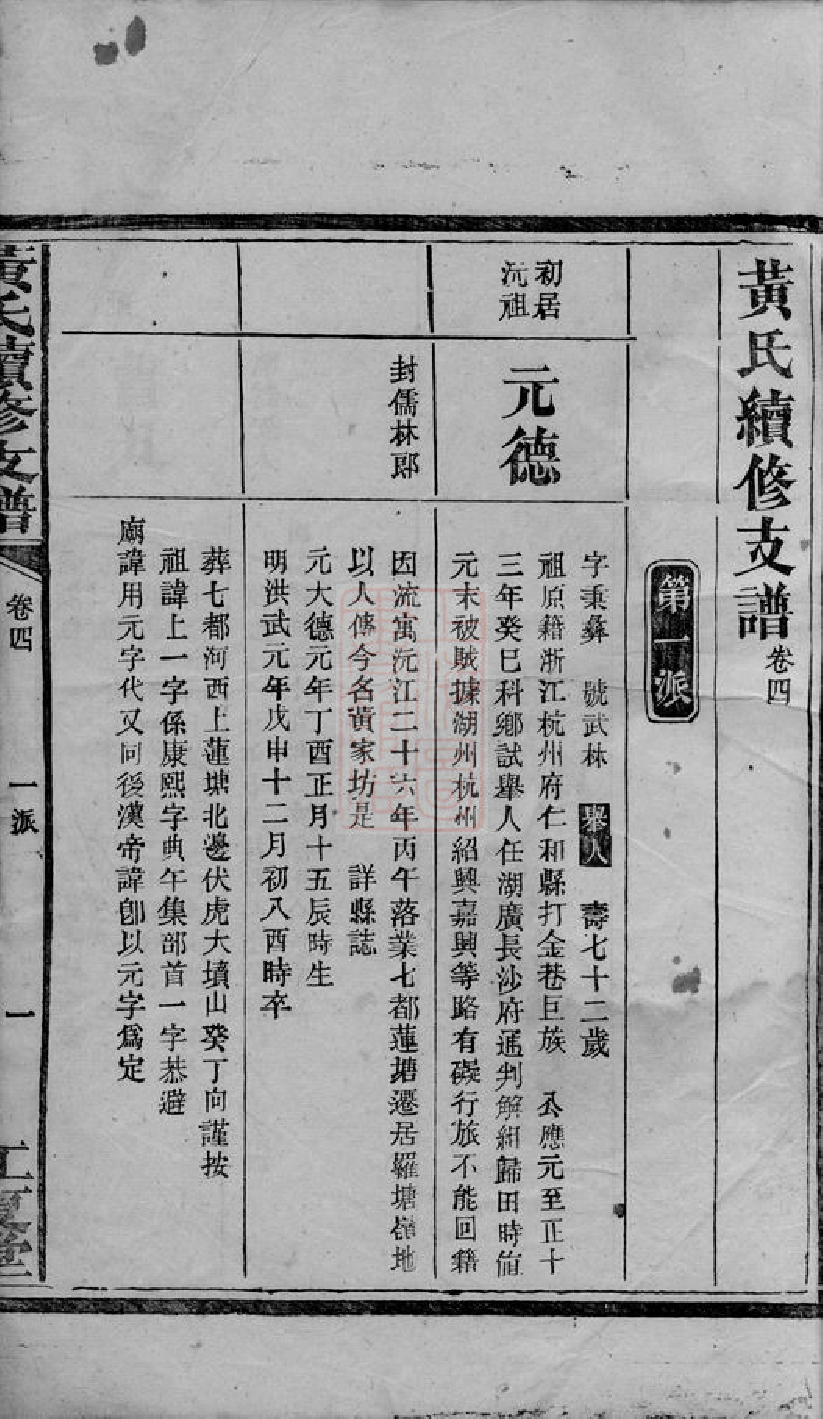 黃氏續修支譜 卷四
第一派
初居
沅祖
元德
字秉彝 號武林 舉人 壽七十二歲
祖原籍浙江杭州府仁和縣打金巷巨族 公應元至正十
三年癸巳科鄉試舉人任湖廣長沙府通判解組歸田時值
元末被賊據湖州杭州紹興嘉興等路有礙行旅不能回籍
封儒林郎
因流寓沅江二十六年丙午落業七都蓮塘遷居羅塘嶺地
以人傳今名黃家坊是 詳縣誌
元大德元年丁酉正月十五辰時生
明洪武元年戊申十二月初八酉時卒
葬七都河西上蓮塘北邊伏虎大墳山癸丁向謹按
祖諱上一字係康熙字典午集部首一字恭避
廟諱用元字代又同後漢帝諱卽以元字爲定
黃氏續修支譜
卷四
一派
一
江夏堂